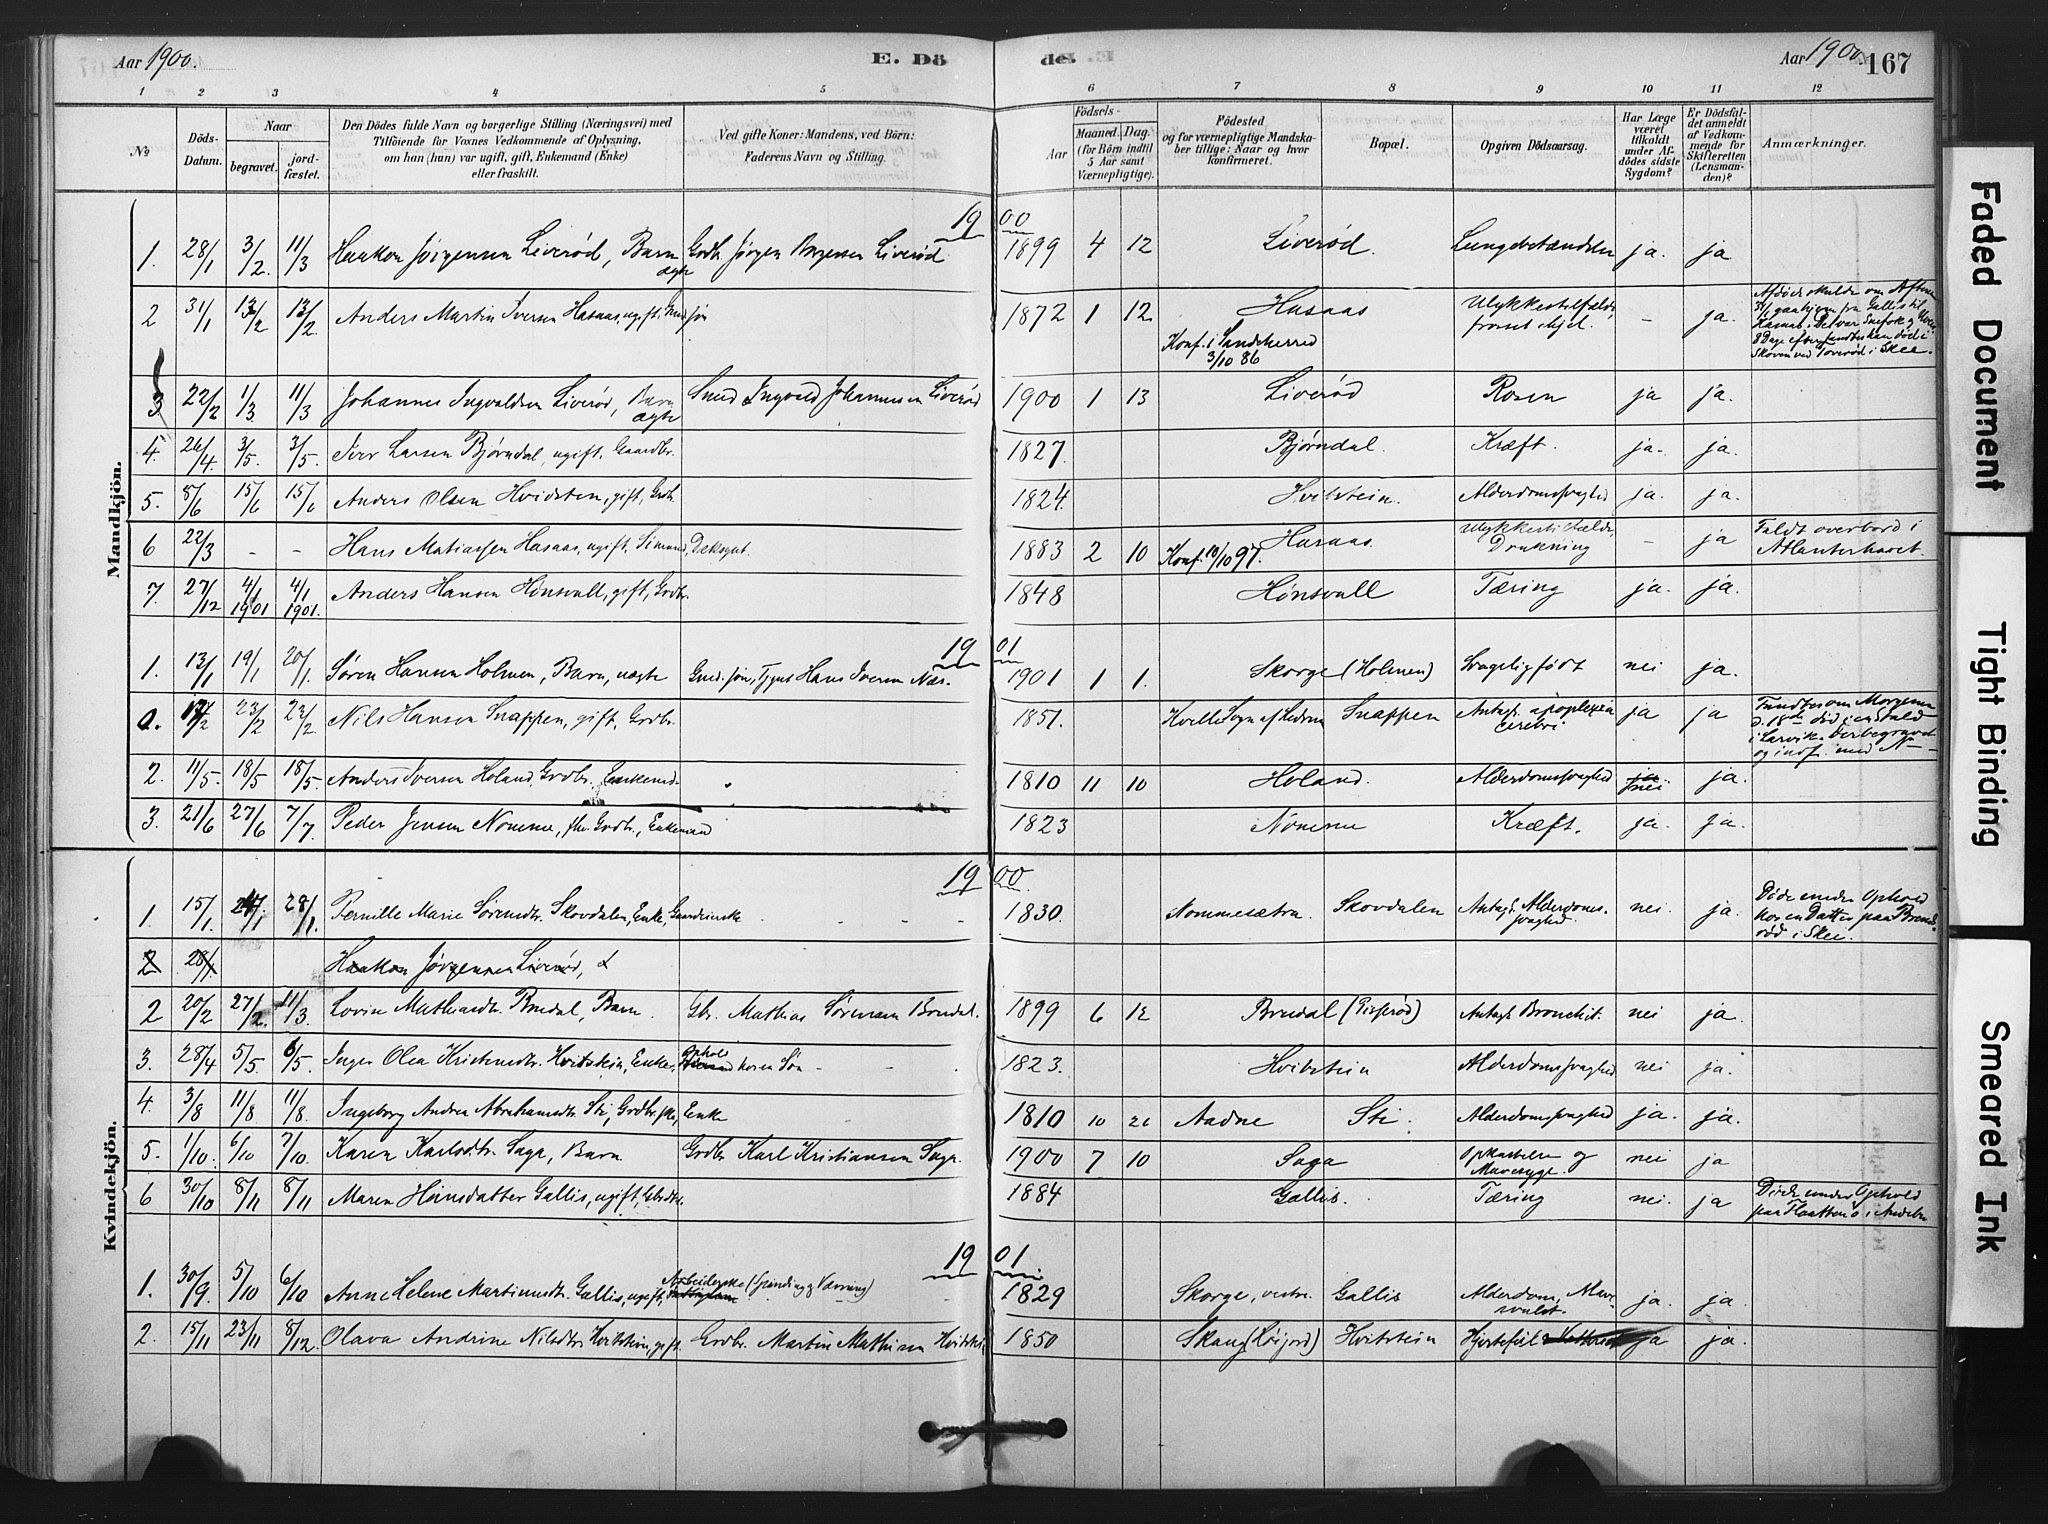 Aar 1900.
E. Dö
de. E.
Aar 1900.
167
1 2 3 4 5 6 7 8 9 10 11 12
№
Döds-Datum.
Naar
begravet.
jord-fæstet.
Den Dödes fulde Navn og borgerlige Stilling (Næringsvei) med
Tilföiende for Voxnes Vedkommende af Oplysning,
om han (hun) var ugift, gift, Enkemand (Enke)
eller fraskilt.
Ved gifte Koner: Mandens, ved Börn:
Faderens Navn og Stilling.
Födsels-
Aar
Maaned. Dag.
(for Börn indtil
5 Aar samt
Værnepligtige).
Födested
og for værnepligtige Mandska-
ber tillige: Naar og hvor
konfirmeret.
Bopæl.
Opgiven Dödsaarsag.
Har Læge
været
tilkaldt
under Af-
dödes sidste
Sygdom?
Er Dödsfal-
det anmeldt
af Vedkom-
mende for
Skifteretten
(Lensman-
den)?
Anmærkninger.
Mandkjön.
1900
1. 28/1 3/2. 11/3 Haakon Jørgensen Liverød, Barn ægte Grdb. Jørgen Liverød 1899 4 12 Liverød. Lungebetændelse ja. ja
2 31/1 13/2 13/2 Anders Martin Iversen Hasaas, ugift, 1872 1 12. Hasaas Ulykkestilfælde, frosset ihjel. – ja.
Konf. i Sandeherred 3/10 86
Afdøde skulde om Aftenen 31/1 gaa hjem fra Gallis til Hasaas. Det var Snefok og 8 Dage efter fandtes han død i Skoven ved i Skee.
3 22/2 1/3 11/3 Johannes Ingvaldsen Liverød, Barn ægte Smed Ingvald Johannesen Liverød 1900 1 13 Liverød Rosen ja ja.
4. 26/4 3/5. 3/5. Iver Larsen Bjørndal, ugift. Gaardbr. 1827. Bjørndal. Kræft. ja. ja.
5. 8/6 15/6 15/6 Anders Olsen Hvidsten, gift, Grdbr. 1824. Hvitstein. Alderdomssvaghed ja. ja.
6 22/3 – – Hans Mathiassen Hasaas, ugift. Sømand, Dæksgut. 1883 2 10 Konf. 10/10 97. Hasaas. Ulykkestilfælde, Drukning – ja Faldt overbord i Atlanterhavet.
7. 27/12 4/1 1901 4/1 1901. Anders Hansen Hønsvall, gift, Grdbr. 1848 Hønsvall Tæring ja. ja.
1901
1. 13/1 19/1 20/1. Søren Hansen Holmen, Barn, uægte Hans Iversen Næs. 1901 1 1. Skorge (Holmen) Svagelig født nei ja.
0. 17/2 23/2 23/2 Nils Hansen Snappen, gift, Grdbr. 1851. Kvelle Sogn af Hedrum Snappen Antagl. apoplexia cerebri ja ja Fandtes om Morgenen d. 18de død i en Stald i Larvik. Der begravet og indf. med N –
2. 11/5. 18/5 18/5. Anders Iversen Holand, Grdbr. Enkemd. 1810 11 10 Holand. Alderdomssvaghed ja nei ja.
3. 21/6 27/6 7/7. Peder Jensen Nomme, fhv. Grdbr., Enkemand 1823 Nomme Kræft. ja. ja.
Kvindekjön.
1900
1. 15/1 24/1 28/1. Pernille Marie Sørensdtr. Skovdalen, Enke, 1830. Nommesætra Skovdalen Antagl. Alderdoms-svaghed. nei ja. Døde under Ophold hos en Datter paa i Skee.
2 28/1 Haakon Jørgensen Liverød,
2 20/2 27/2. 11/3. Lovise Mathiasdtr. Bredal, Barn. Gbr. Mathias Sørensen Bredal. 1899 6 12 Bredal Antagl. Bronchit. nei ja.
3. 28/4 5/5 6/5. Inger Olea Kristensdtr. Hvitstein, Enke, Ophold hos en Søn 1823. Hvitstein Alderdomssvaghed nei ja.
4. 3/8 11/8 11/8. Ingeborg Andrea Abrahamsdtr. Sti, Grdbr.ske, Enke 1810 10 26 Aadne Sti. Alderdomssvaghed ja. ja.
5. 1/10. 6/10 7/10. Karen Karlsdtr. Saga, Barn Grdbr. Karl Kristiansen Saga. 1900 7 10 Saga Opkastelse og Mavesyge. nei ja
6 30/10 8/11 8/11 Maren Hansdatter Gallis, ugift, 1884 Gallis. Tæring nei. ja Døde under Ophold paa i Andebu
1901
1. 30/9. 5/10 6/10 Anne Helene Martinusdtr. Gallis, ugift, Arbeiderske (Spinding og Vævning) 1829 Skorge, vestre. Gallis Alderdom, Mave- ja. ja.
2. 15/11 23/11 8/12. Olava Andrine Nilsdtr. Hvitstein, gift. Grdbr. Martin Mathisen Hvitstein 1850 Skaug (Høijord) Hvitstein Hjertefeil ja ja.
Faded Document
Tight Binding
Smeared Ink